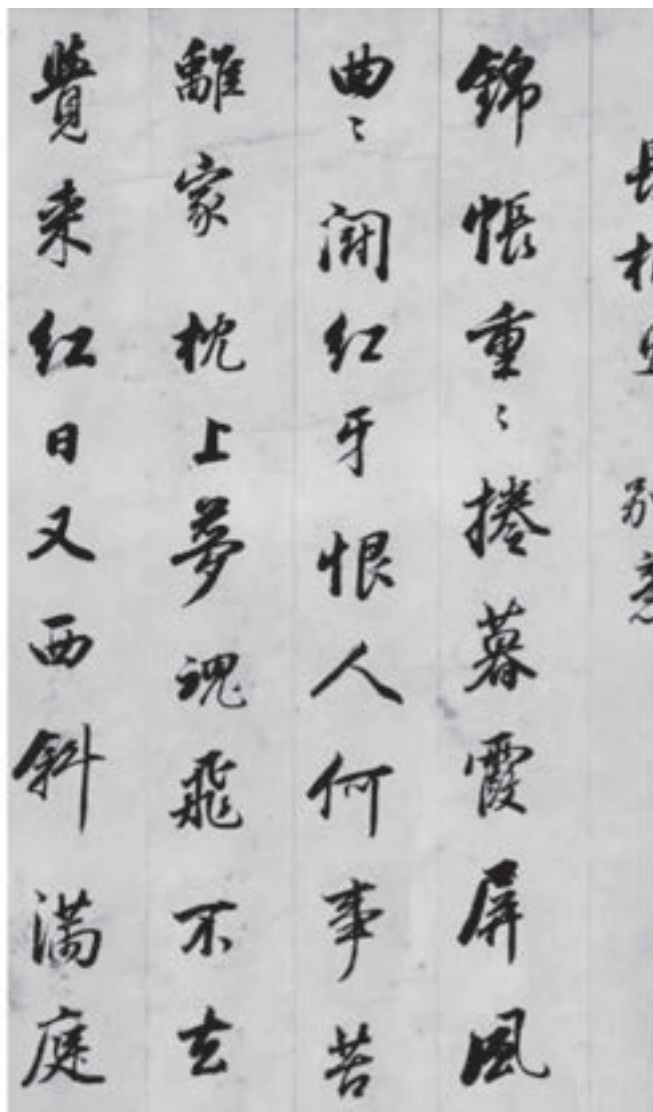 長相思 別意
錦帳重〻捲暮霞屏風
曲〻闘紅牙恨人何事苦
離家枕上夢魂飛不去
覺来紅日又西斜滿庭